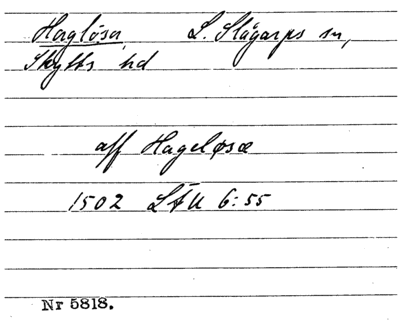 Haglösa, L. Slågarps sn,
Skytts hd
aff Hageløsæ
1502 LÅU 6:55
Nr 5818.